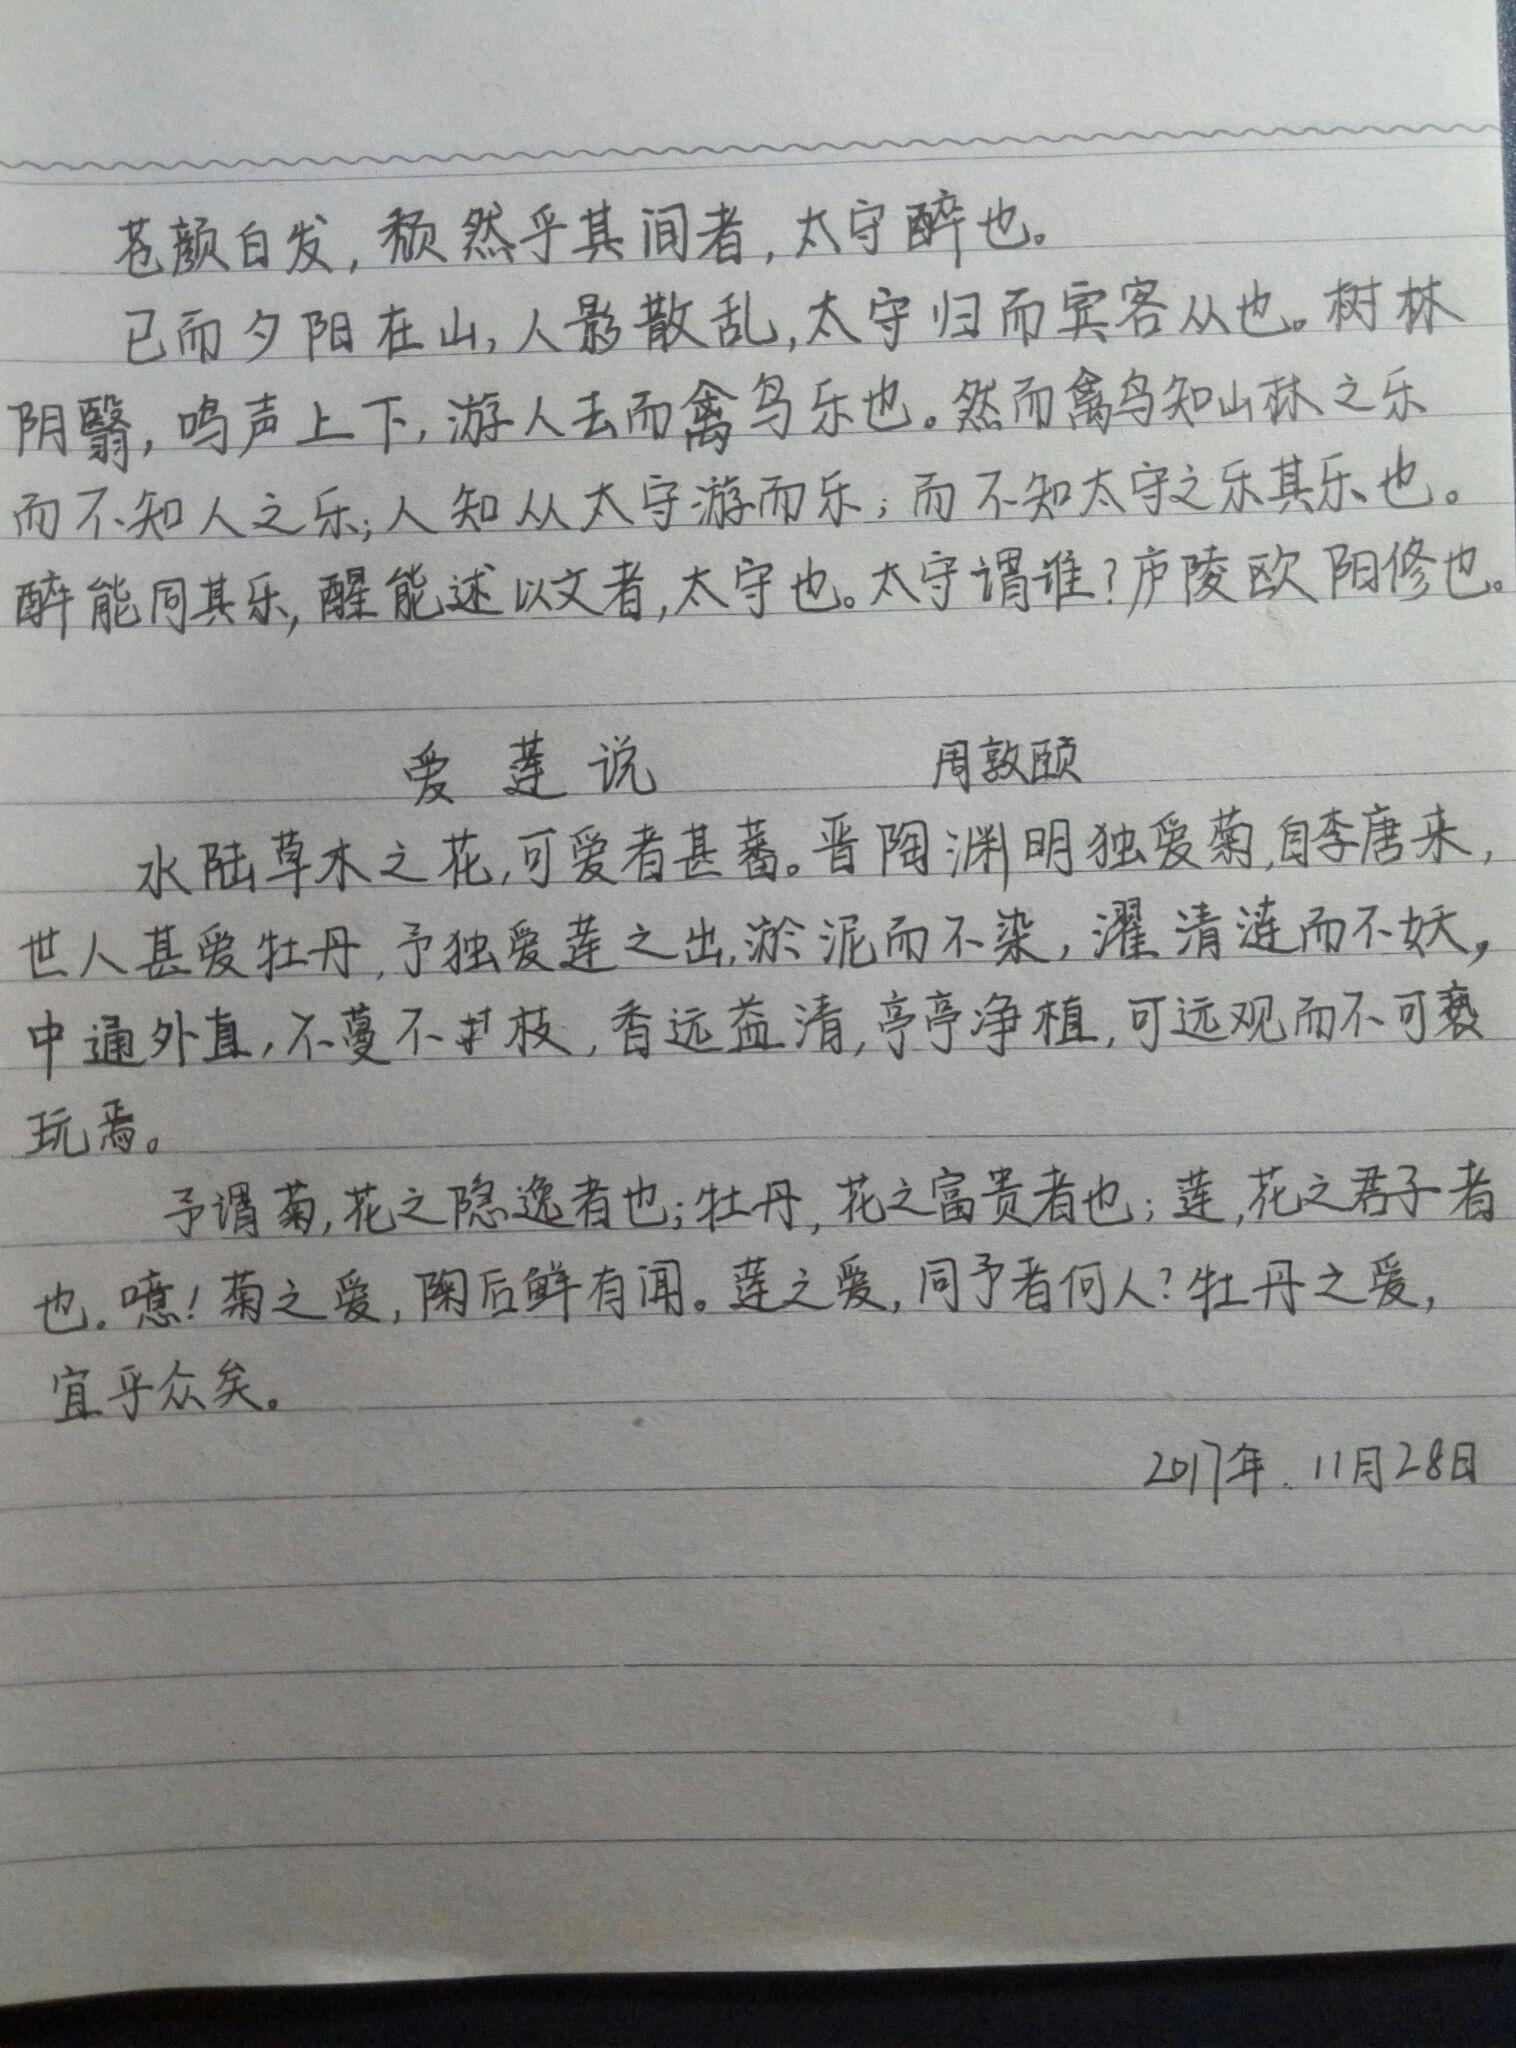 苍颜白发，颓然乎其间者，太守醉也。
已而夕阳在山，人影散乱，太守归而宾客从也。树林
阴翳，鸣声上下，游人去而禽鸟乐也。然而禽鸟知山林之乐
而不知人之乐；人知从太守游而乐；而不知太守之乐其乐也。
醉能同其乐，醒能述以文者，太守也。太守谓谁？庐陵欧阳修也。
爱莲说 周敦颐
水陆草木之花，可爱者甚蕃。晋陶渊明独爱菊，自李唐来，
世人甚爱牡丹，予独爱莲之出淤泥而不染，濯清涟而不妖，
中通外直，不蔓不枝，香远益清，亭亭净植，可远观而不可亵
玩焉。
予谓菊，花之隐逸者也；牡丹，花之富贵者也；莲，花之君子者
也。噫！菊之爱，陶后鲜有闻。莲之爱，同予者何人？牡丹之爱，
宜乎众矣。
2017年.11月28日